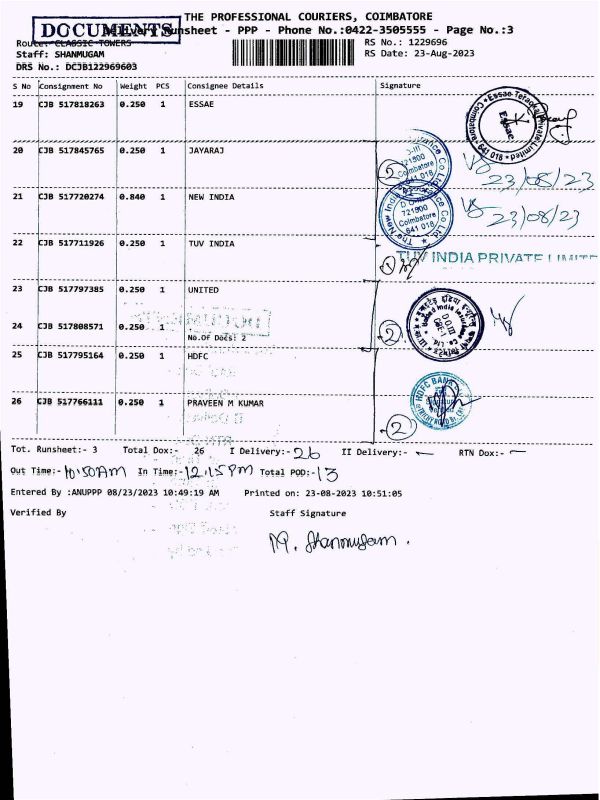 THE PROFESSIONAL COURIERS, COIMBATORE
DOCUMENTS
Delivery Runsheet - PPP - Phone No.:0422-3505555 - Page No.:3
Route: CLASSIC TOWERS
RS No.: 1229696
Staff: SHANMUGAM
RS Date: 23-Aug-2023
DRS No.: DCJB122969603
S No Consignment No Weight PCS Consignee Details Signature
19 CJB 517818263 0.250 1 ESSAE
Essae Private Limited Coimbatore 641 018
Essae
20 CJB 517845765 0.250 1 JAYARAJ
721800
Coimbatore
641 018
2
23/08/23
21 CJB 517720274 0.840 1 NEW INDIA
The New India Co Ltd
721800
Coimbatore
641 018
23/08/23
22 CJB 517711926 0.250 1 TUV INDIA
TUV INDIA PRIVATE LIMITE
1
23 CJB 517797385 0.250 1 UNITED
24 CJB 517808571 0.250 1
No.Of Docs: 2
2
25 CJB 517795164 0.250 1 HDFC
HDFC BANK
26 CJB 517766111 0.250 1 PRAVEEN M KUMAR
2
Tot. Runsheet:- 3 Total Dox:- 26 I Delivery:- 26 II Delivery:- — RTN Dox:- —
Out Time:- 10.50AM In Time:- 12.15PM Total POD:- 13
Entered By :ANUPPP 08/23/2023 10:49:19 AM Printed on: 23-08-2023 10:51:05
Verified By Staff Signature
M. Shanmugam.